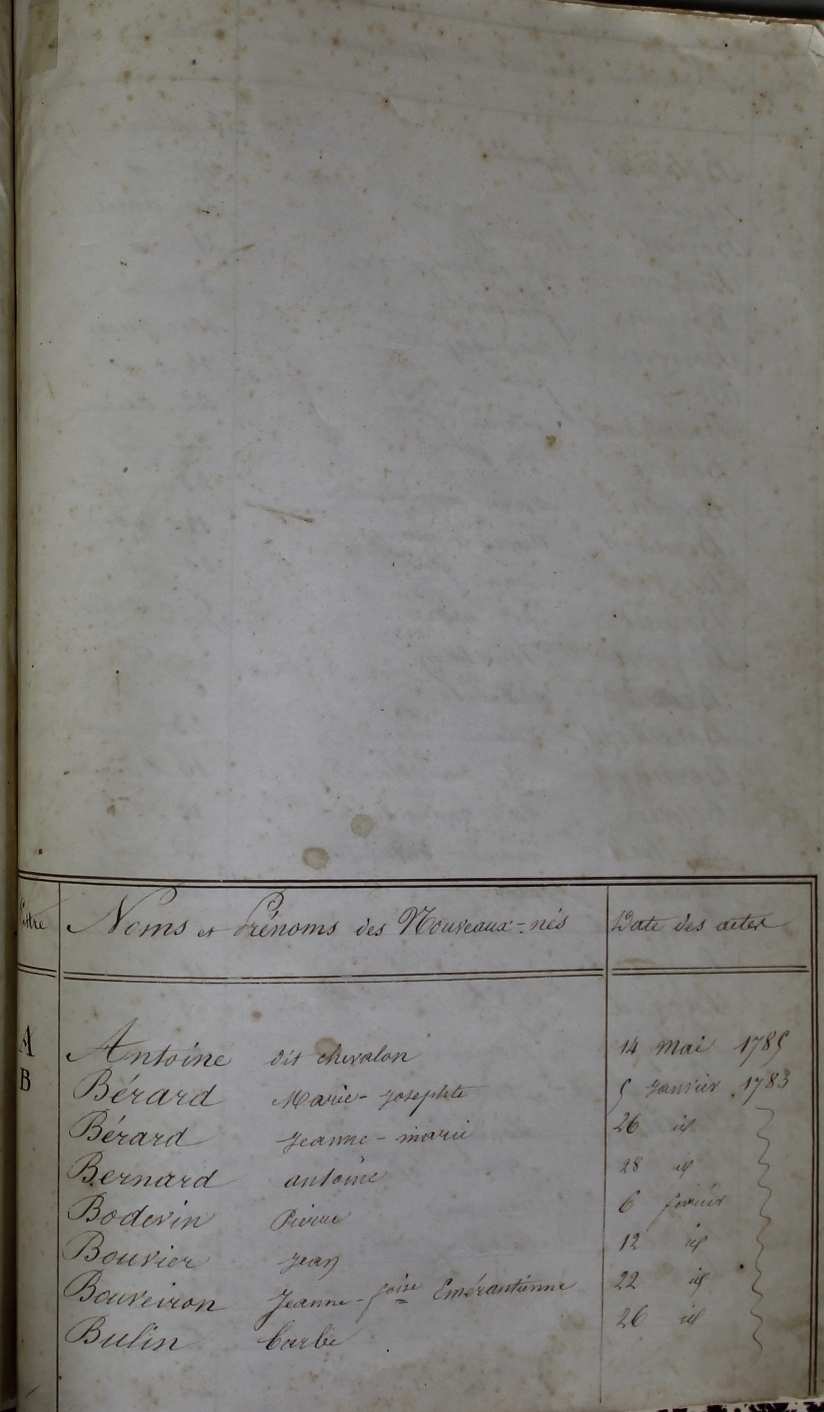 Noms et Prénoms des Nouveaux-nés Date des actes
A Antoine dit chevalon 14 mai 1785
B Bérard Marie-Josephte 5 Janvier 1783
Bérard Jeanne-marie 26 id
Bernard antoine 28 id
Bodevin Pierre 6 février
Bouvier Jean 12 id
Bouveiron Jeanne-foise Emérantienne 22 id
Bulin barbe 26 id